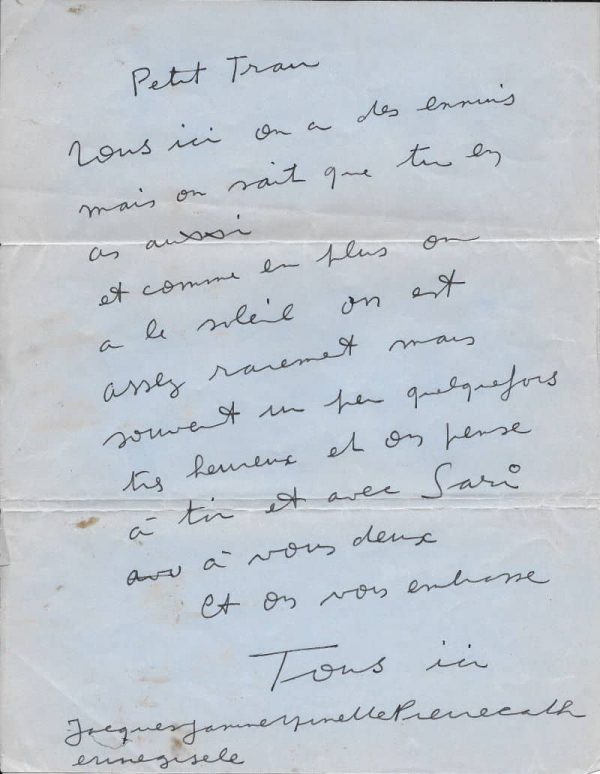 Petit Trau
Tous ici on a des ennuis
mais on sait que tu en
as aussi
et comme en plus on
a le soleil on est
assez rarement mais
souvent un peu quelquefois
très heureux et on pense
à toi et avec Sari
avv à vous deux
Et on vous embrasse
Tous ici
JacquesJanineMinettePierrecath
erinegisele